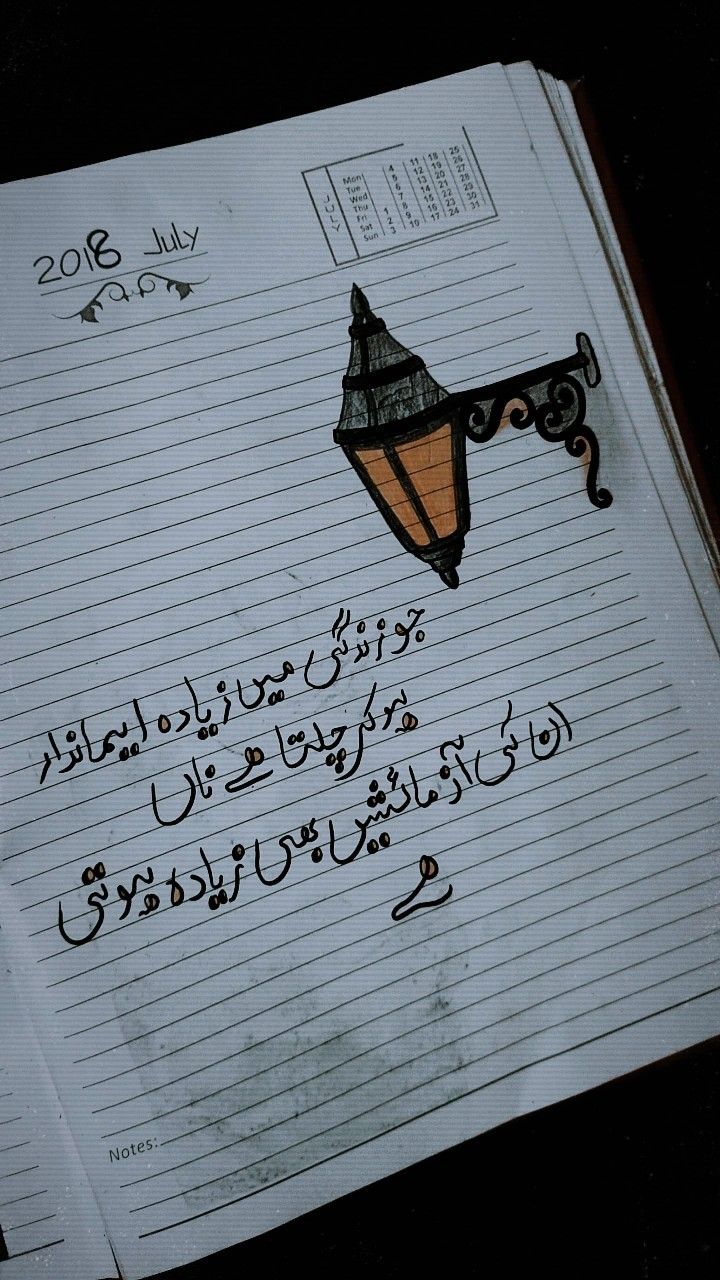 2018 July
JULY
Mon 4 11 18 25
Tue 5 12 19 26
Wed 6 13 20 27
Thu 7 14 21 28
Fri 1 8 15 22 29
Sat 2 9 16 23 30
Sun 3 10 17 24 31
جو زندگی میں زیادہ ایماندار
ہوکر چلتا ہے ناں
ان کی آزمائشیں بھی زیادہ ہوتی
ہے
Notes: